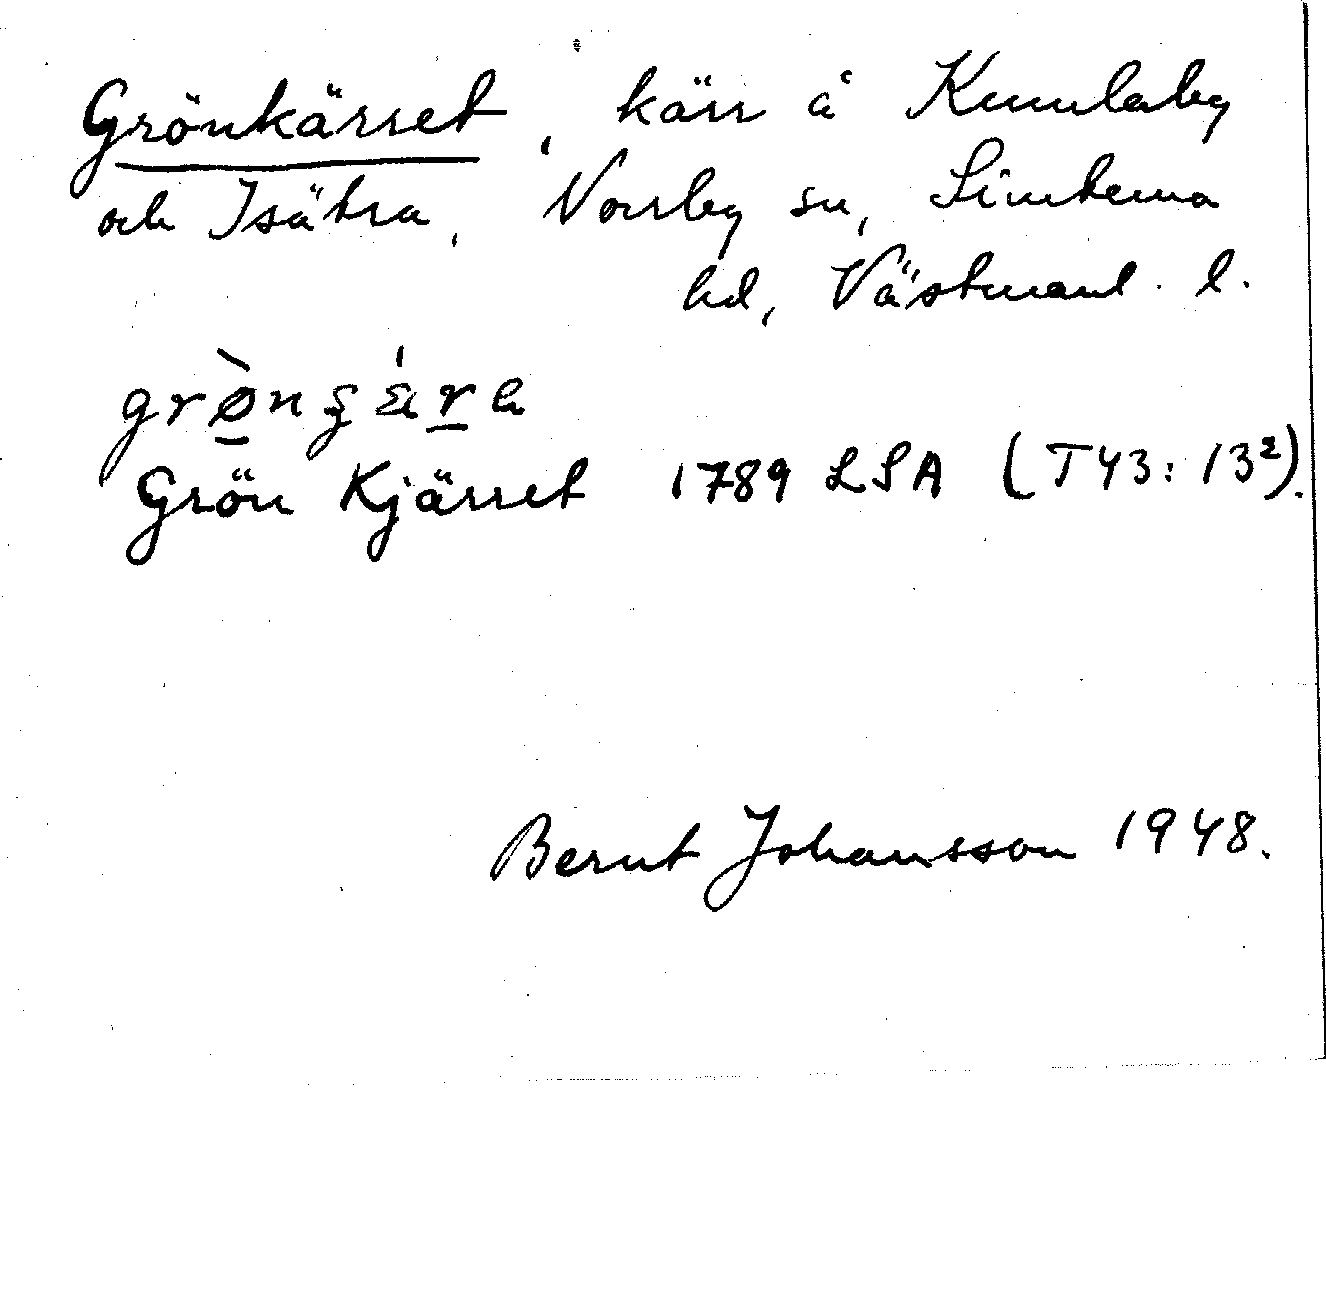 Grönkärret, kärr å Kumlaby
och Isätra, Norrby sn, Simtuna
hd, Västmanl. l.
Grön Kjärret 1789 LSA (T43: 13²).
Bernt Johansson 1948.